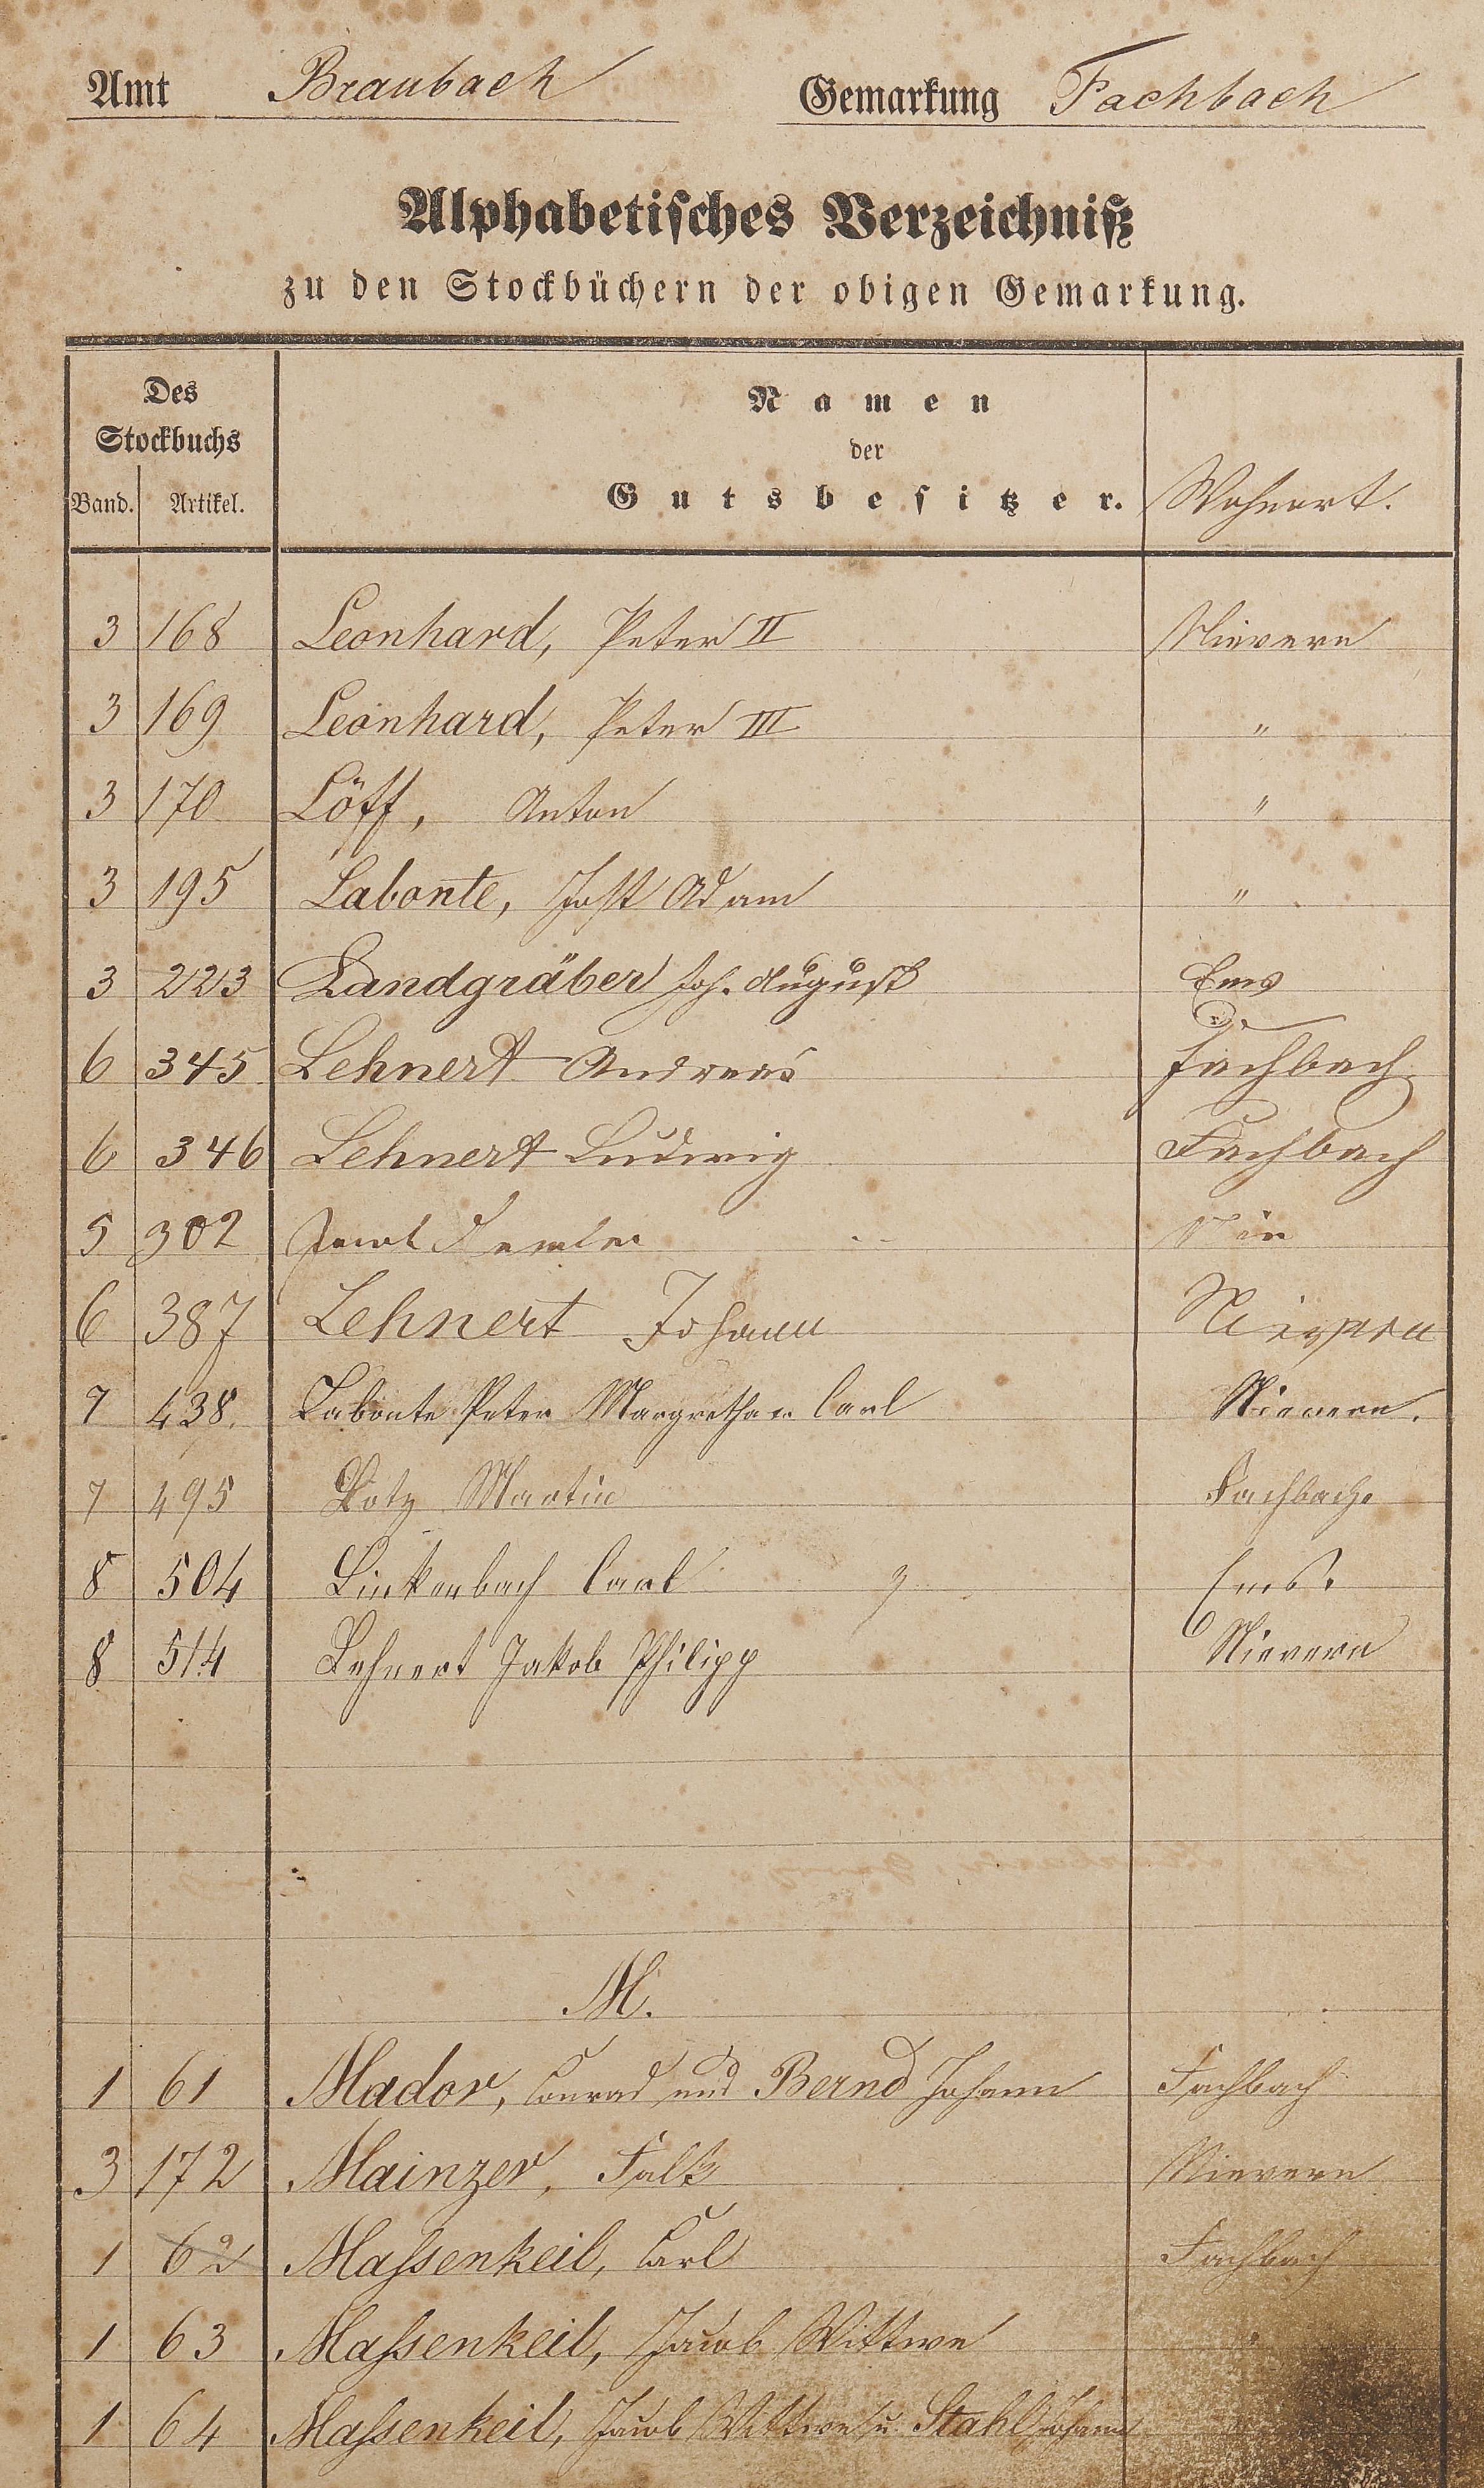 Amt Braubach Gemarkung Fachbach
Alphabetisches Verzeichniß
zu den Stockbüchern der obigen Gemarkung.
Des
Stockbuchs
Band. Artikel.
Namen
der
Gutsbesitzer.
Wohnort.
3 168 Leonhard, Peter II Nievern
3 169 Leonhard, Peter III "
3 170 Löff, Anton "
3 195 Labonte, Jost Adam "
3 223 Landgräber Joh. August Ems
6 345 Lehnert Andreas Fachbach
6 346 Lehnert Ludwig Fachbach
5 302
6 387 Lehnert Johann Nievern
7 438. Labonte Peter Margretha u. Carl Nievern.
7 495 Lotz Martin Fachbach.
8 504 Linkenbach Carl Ems.
8 514 Lehnert Jakob Philipp Nievern
M.
1 61 Mador, Conrad und Bernd Johann Fachbach
3 172 Mainzer, Falk Nievern
1 62 Maßenkeil, Carl Fachbach
1 63 Maßenkeil, Jacob Wittwe "
1 64 Maßenkeil, Jacob Wittwe u. Stahl Johann